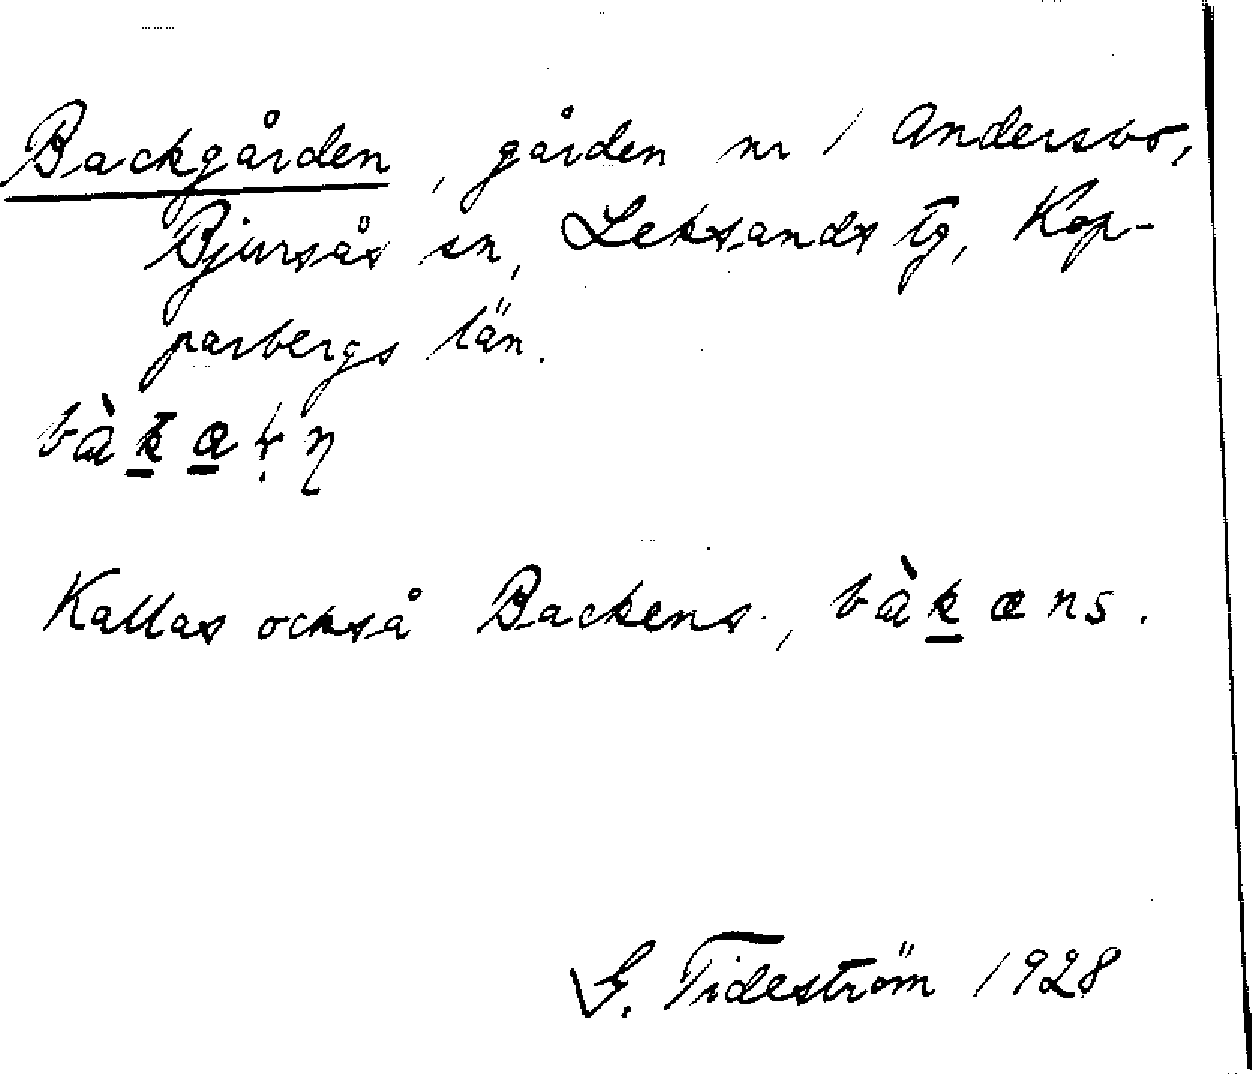 Backgården, gården nr 1 Andersbo,
Bjursås sn, Leksands tg, Kop-
parbergs län.
Kallas också Backens,
G. Tideström 1928